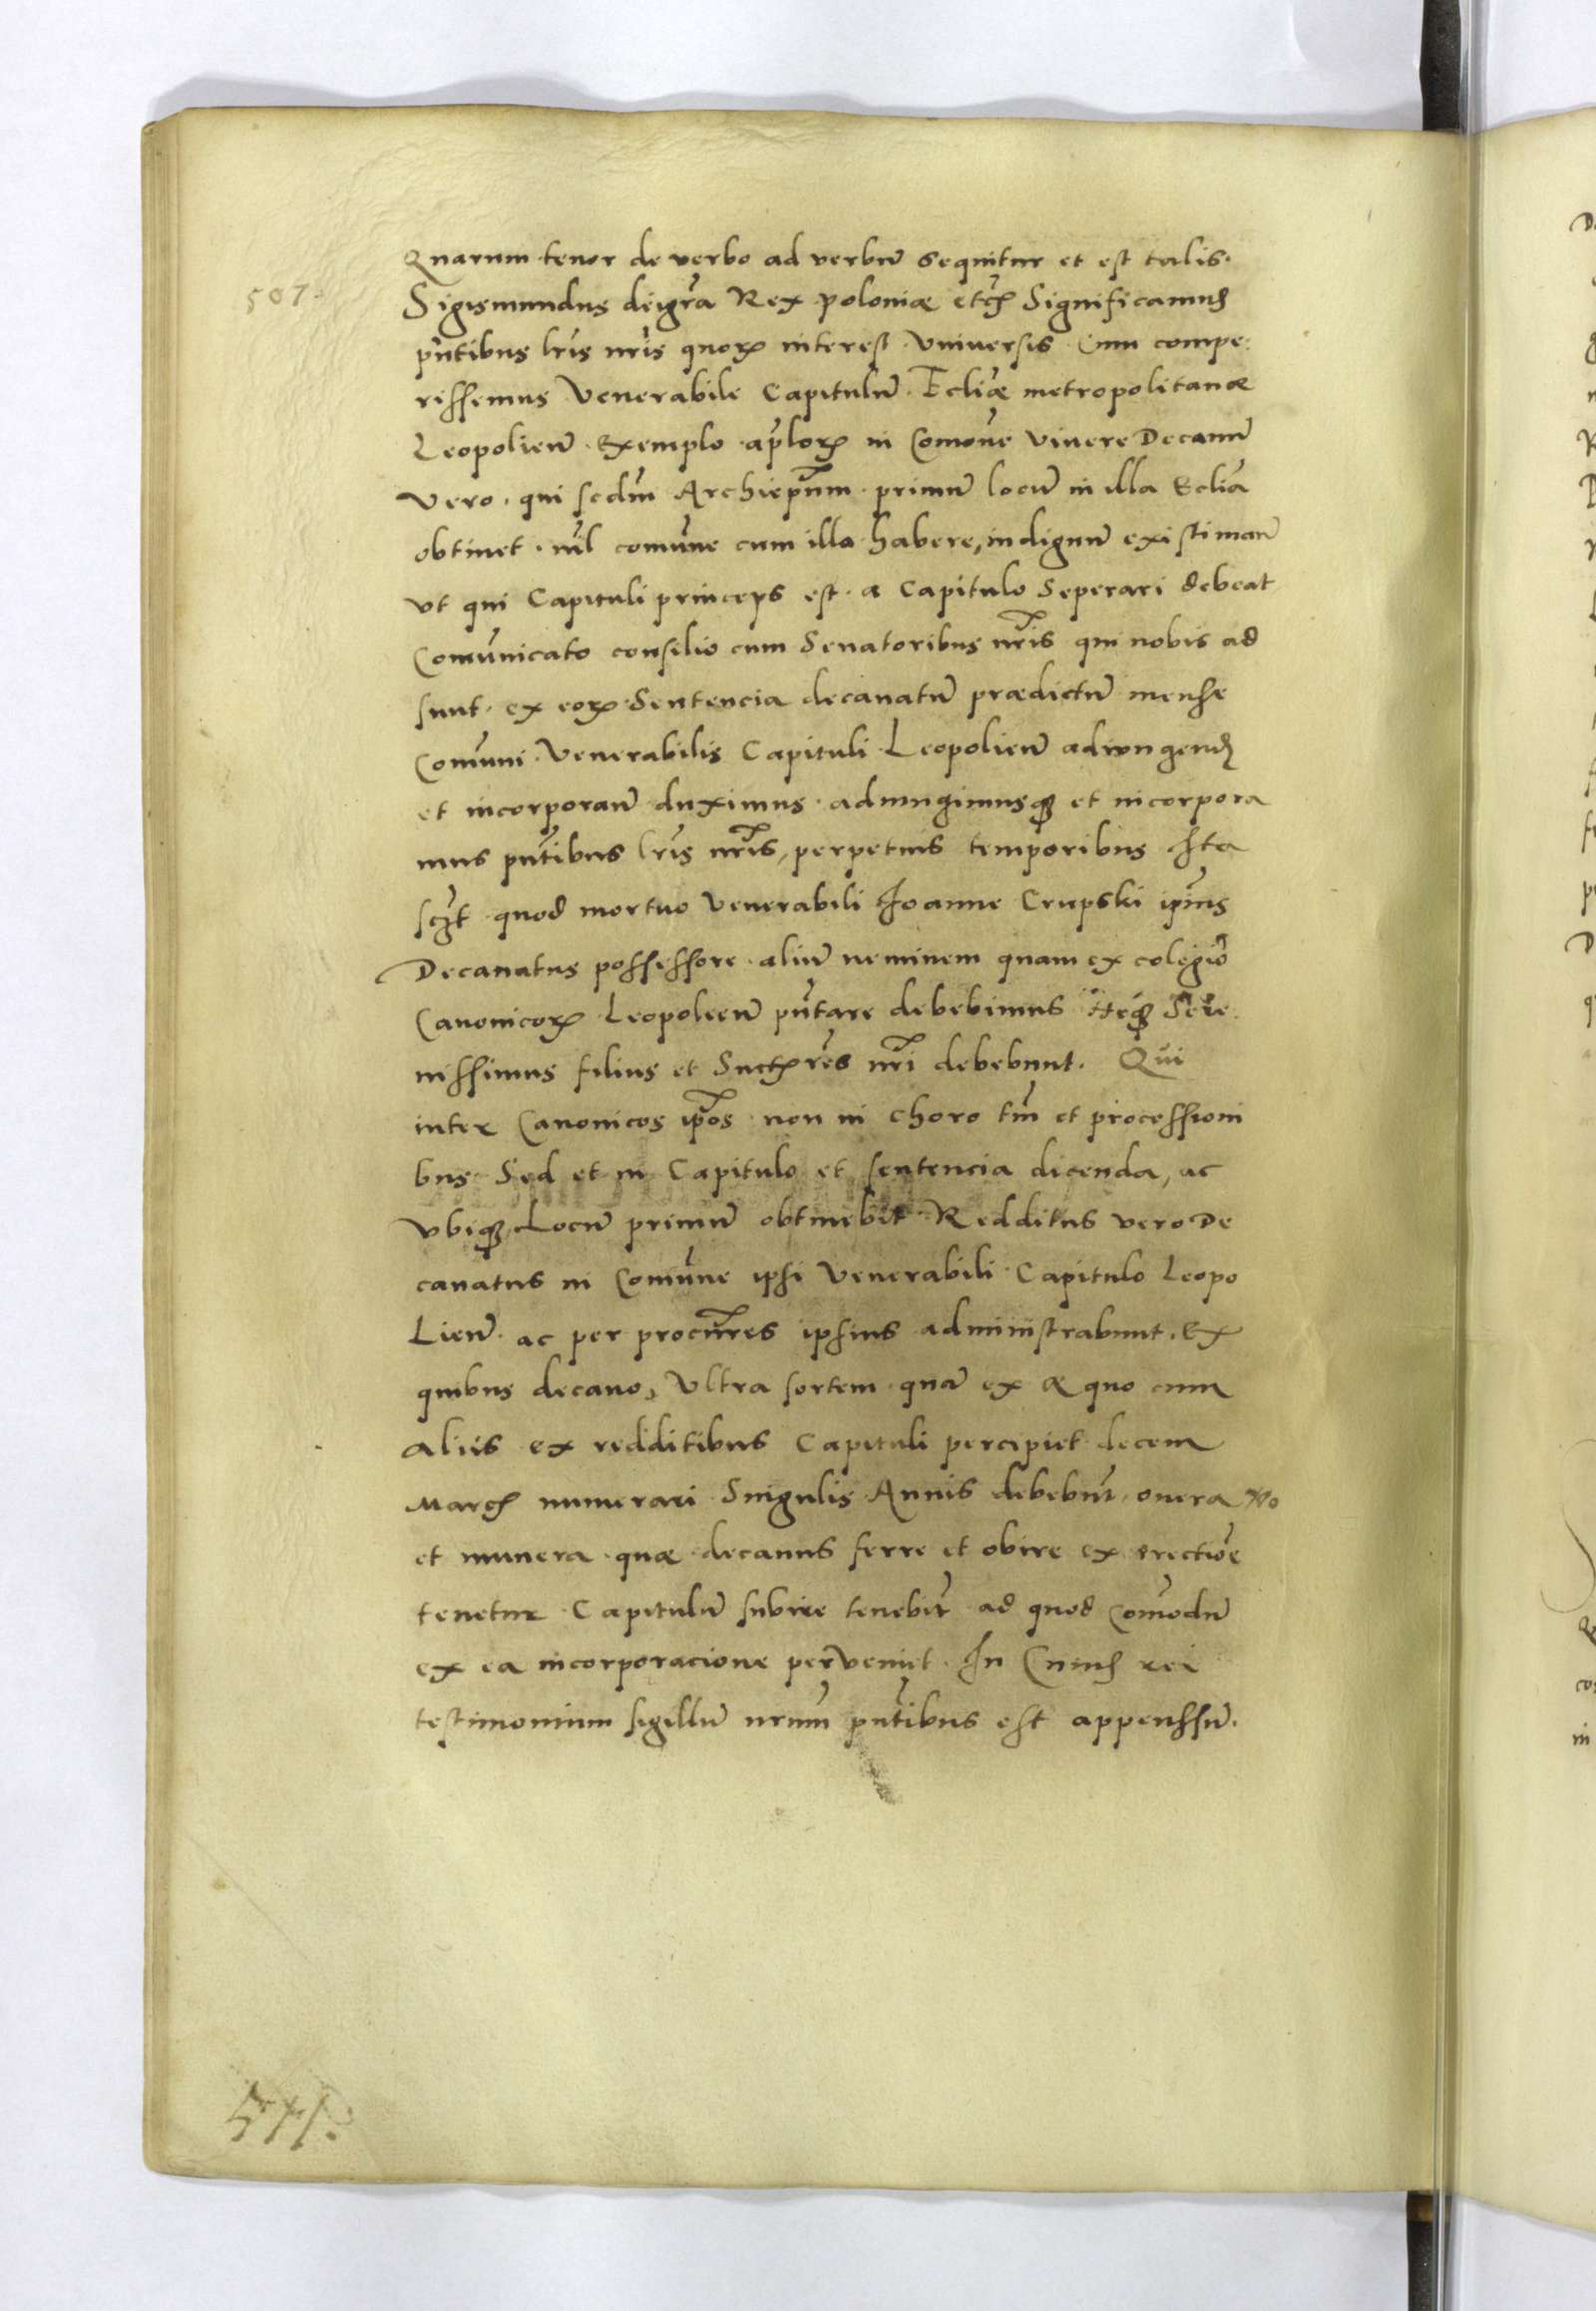 Quarum tenor de verbo ad verbũ sequitur et est talis.
507.
Sigismundus deigr̃a Rex poloniæ etc̃ Significamus
pñtibus lr̃is nr̃is quoꝝ interest Universis Cum compe
rissemus Venerabile Capitulũ Eccliæ metropolitanæ
Leopolieñ Exemplo aplõꝝ in Comoñe vivere Decanũ
vero. qui scdm̃ Archiepũm primũ locũ in illa Ecliã
obtinet. nil comũne cum illa habere, indignũ existimañ
vt qui Capituli princeps est. a Capitulo Seperari debeat
Comũnicato consilio cum Senatoribus nr̃is qui nobis ad
sunt. ex eoꝝ Sentencia decanatũ prædictũ mensæ
Comũni Venerabilis Capituli Leopolieñ adiongend
et incorporañ duximus. adiungimusqꝫ et incorpora
mus pñtibus lr̃is nr̃is, perpetuis temporibus Ita
sczt quod mortuo Venerabili Joanne Crupski ipĩus
Decanatus possessore aliũ neminem quam ex colegiõ
Canonicoꝝ Leopoleeñ pñtare debebimus Heqꝫ Sere
nissimus filius et Succ̃res nr̃i debebunt. Qui
inter Canonicos ip̃os non in choro tm̃ et processioni
bus Sed et in Capitulo et sentencia dicenda, ac
vbiqꝫ Locũ primũ obtinebit Redditus vero De
canatus in Comũne ipsi Venerabili Capitulo Leopo
Lieñ. ac per procũres ipsius administrabunt. Ex
quibus decano, Ultra sortem quã ex æ quo cum
aliis ex redditibus Capituli percipiet decem
March numerari Singulis Annis debebũt. onera vo
et munera quæ decanus ferre et obire ex erectiõe
tenetur Capitulũ subire tenebit̃ ad quod Com̃odũ
ex ea incorporacione perveniet. In Cuius rei
testimonium sigillũ nrũm pñtibus est appenssũ.